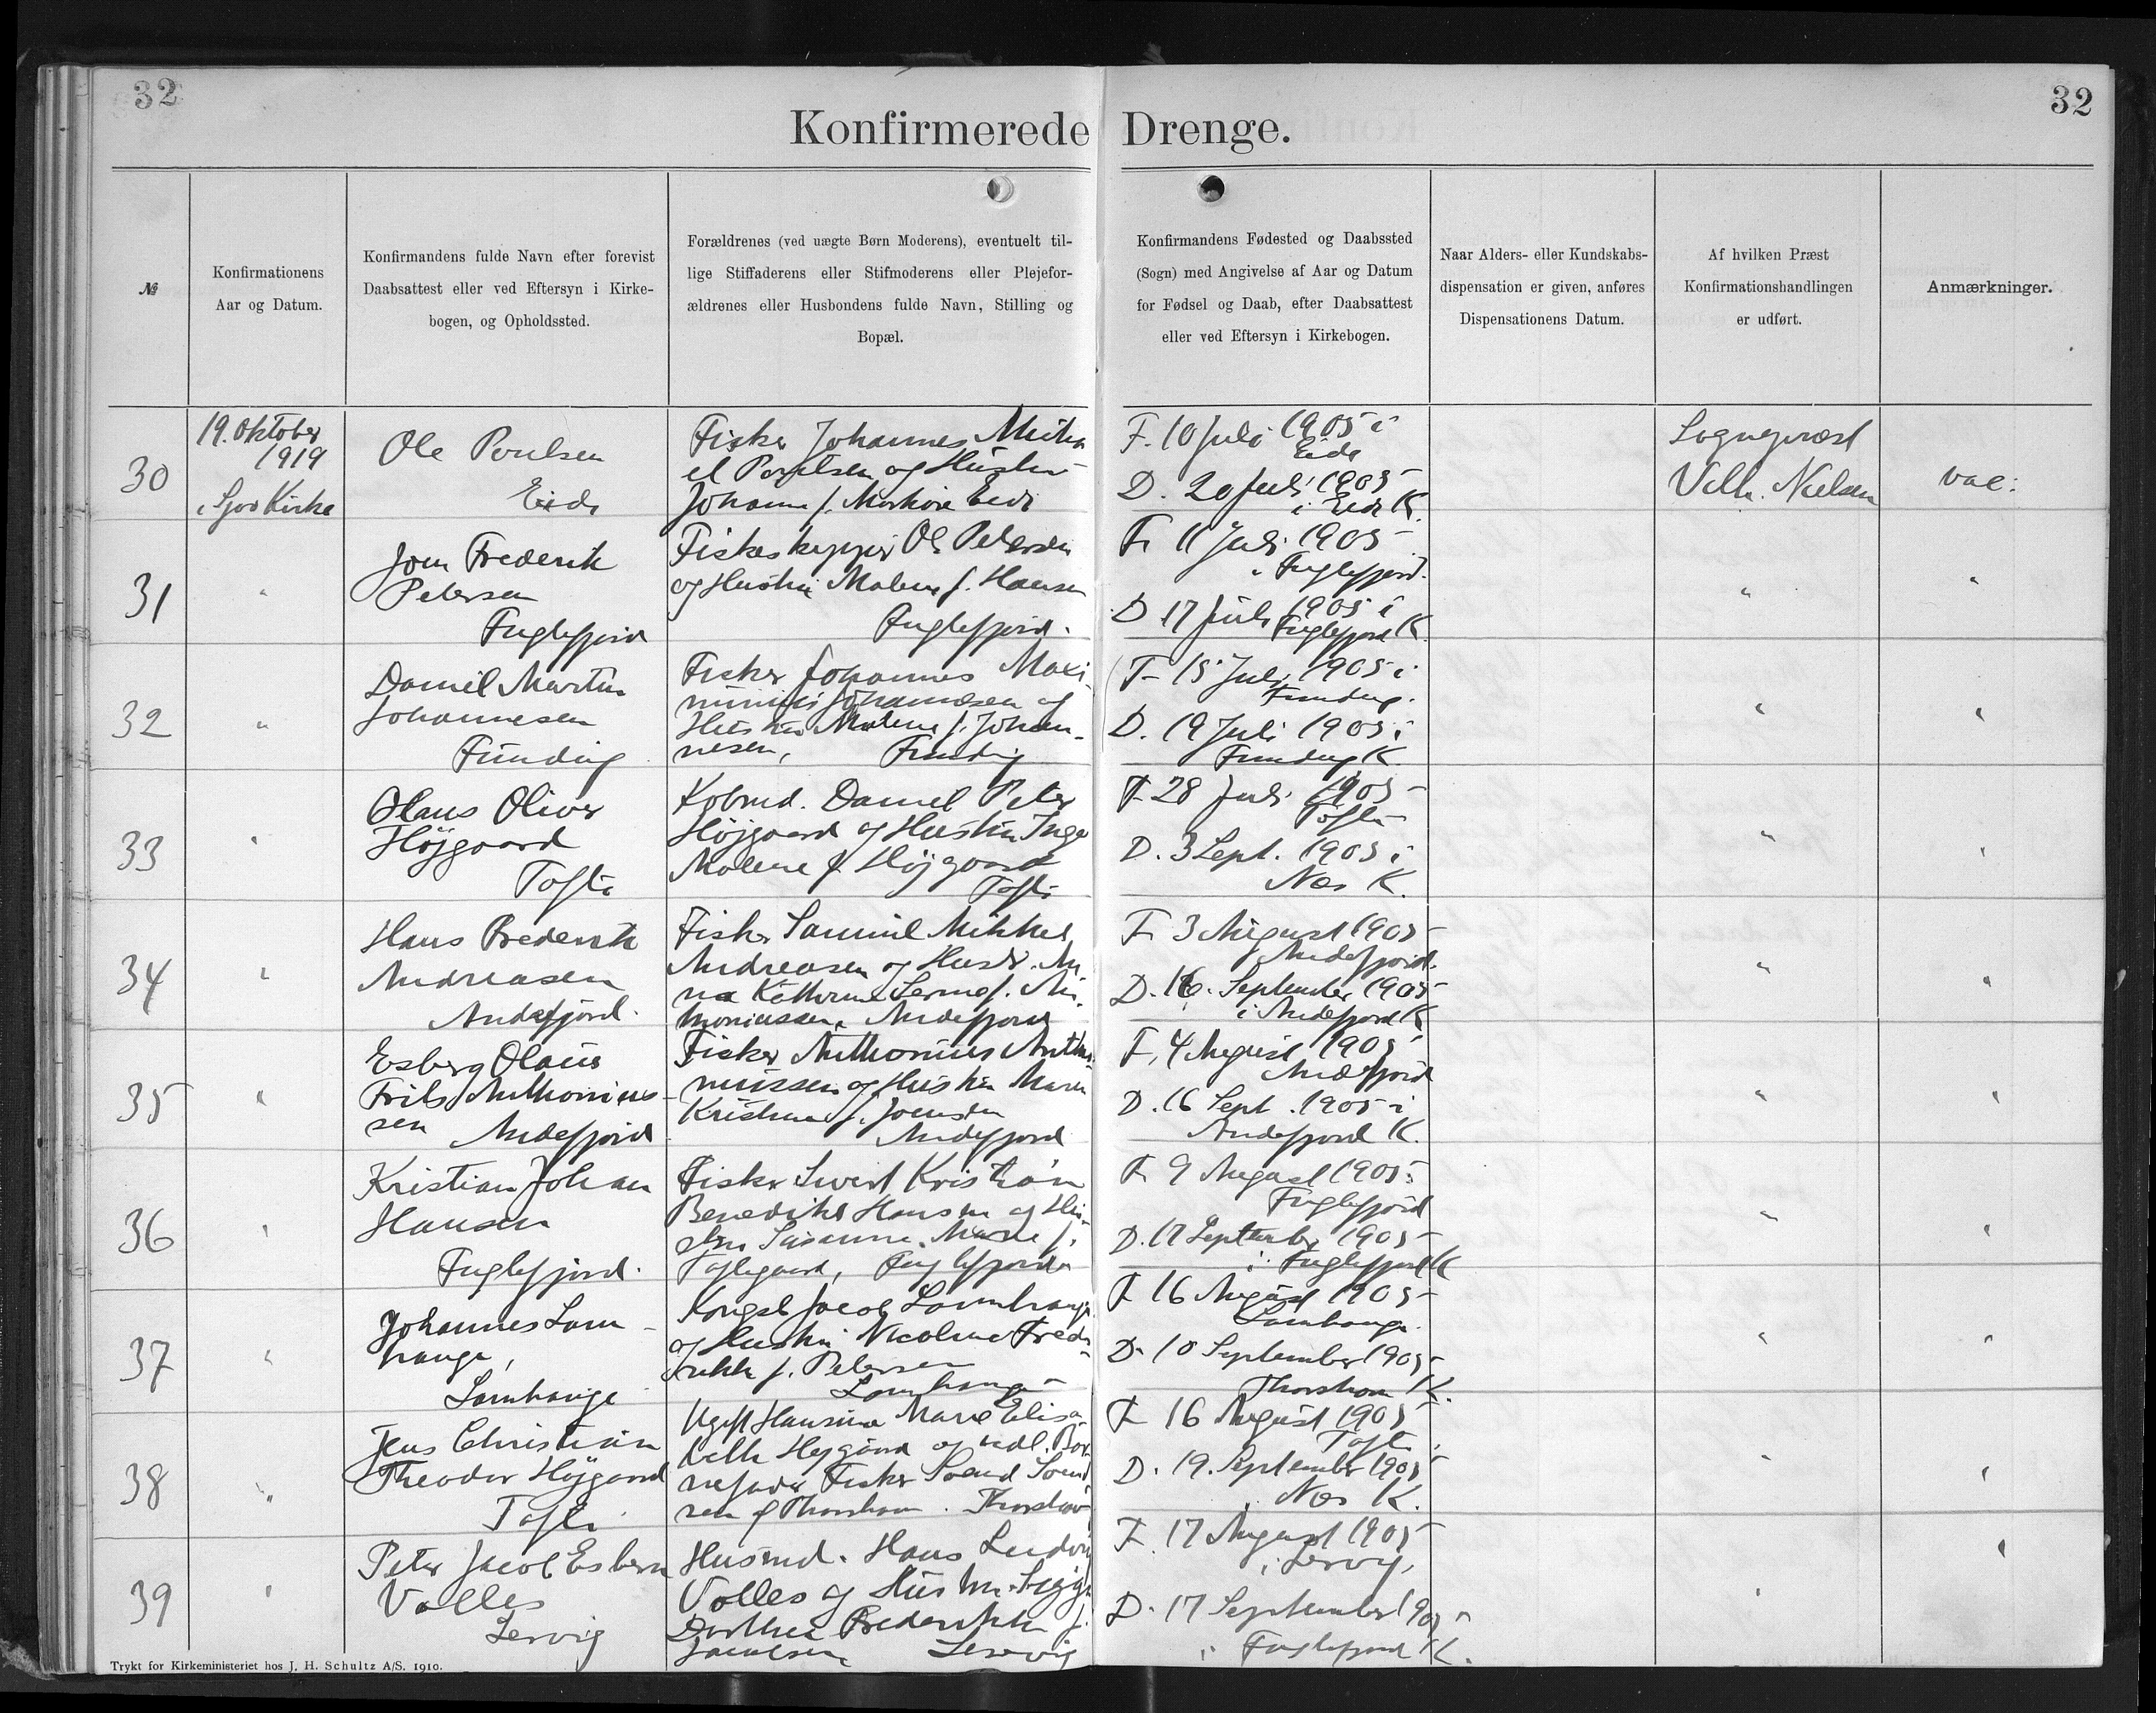 32
32
Konfirmerede Drenge.
№
Konfirmationens
Aar og Datum.
Konfirmandens fulde Navn efter forevist
Daabsattest eller ved Eftersyn i Kirke-
bogen, og Opholdssted.
Forældrenes (ved uægte Børn Moderens), eventuelt til-
lige Stiffaderens eller Stifmoderens eller Plejefor-
ældrenes eller Husbondens fulde Navn, Stilling og
Bopæl.
Konfirmandens Fødested og Daabssted
(Sogn) med Angivelse af Aar og Datum
for Fødsel og Daab, efter Daabsattest
eller ved Eftersyn i Kirkebogen.
Naar Alders- eller Kundskabs-
dispensation er given, anføres
Dispensationens Datum.
Af hvilken Præst
Konfirmationshandlingen
er udført.
Anmærkninger.
30
19. Oktober
1919
i Sjov Kirke
Ole Poulsen
Eide
Fisker Johannes Mika
el Poulsen og Hustru
Johanne f. Morkøre Eide
F. 10 Juli 1905 i
Eide
D. 20 Juli 1905
i Eide K.
Sognepræst
Vilh. Nielsen
vac:
31
"
Joen Frederik
Petersen
Fuglefjord
Fiskeskipper Ole Petersen
og Hustru Malene f. Hansen
Fuglefjord.
F. 11 Juli 1905
i Fuglefjord.
D 17 Juli 1905 i
Fuglefjord K.
"
"
32
"
Daniel Martin
Johannesen
Funding
Fisker Johannes Maxi-
minus Johannesen og
Hustru Malene f. Johan-
nesen, Funding
F. 15 Juli 1905 i
Funding.
D. 19 Juli 1905 i
Funding K.
"
"
33
"
Olaus Oliver
Højgaard
Tofte
Kobmd. Daniel Peter
Højgaard og Hustru Inge
Malene f. Højgaard
Tofte
F. 28 Juli 1905
Tofte
D. 3 Sept. 1905 i
Nes K.
"
"
34
"
Hans Frederik
Andreasen
Andefjord.
Fisker Samuel Mikkel
Andreasen og Hustr. An
na Kathrine f. An-
thoniussen, Andefjord
F. 3 August 1905
i Andefjord.
D. 16. September 1905
i Andefjord K
"
"
35
"
Esberg Olaus
Frits Anthonius-
sen Andefjord
Fisker Anthonius Antho
niussen og Hustru Maren
Kristine f. Joensen
Andefjord
F. 4 August 1905 i
Andefjord
D. 16 Sept. 1905 i
Andefjord K.
"
"
36
"
Kristian Johan
Hansen
Fuglefjord.
Fisker Sivert Kristian
Benedikt Hansen og Hu-
stru Susanne Marie f.
Toftegaard, Fuglefjord
F. 9 August 1905 i
Fuglefjord
D. 17 September 1905
i Fuglefjord K
"
"
37
"
Johannes Lam-
hauge,
Lamhauge
Kongsb. Jacob Lamhauge
og Hustru Nicoline Frede
rikke f. Petersen
Lamhauge
F. 16 August 1905
Lamhauge.
D. 10 September 1905
Thorshavn K.
"
"
38
"
Jens Christian
Theodor Højgaard
Tofte
Ugift Hansine Marie Elisa
beth Højgaard og udl. Bar
nefader Fisker
sen f Thorshavn. Thorshavn
F. 16 August 1905
Tofte.
D. 19. September 1905
i Nes K.
"
"
39
"
Peter Jacob Esbern
Volles
Lervig
Husmd. Hans Ludvig
Volles og Hustru
Dorthea Frederikke f.
Jacobsen Lervig
F. 17 August 1905
i Lervig.
D. 17 September 1905
i Fuglefjord K.
"
"
Trykt for Kirkeministeriet hos J. H. Schultz A/S. 1910.